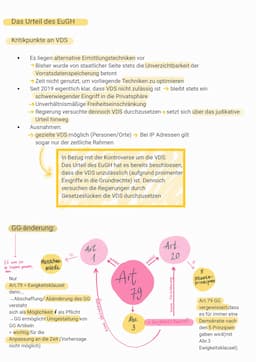 Das Urteil des EuGH
Kritikpunkte an VDS
Es liegen alternative Ermittlungstechniken vor
→ Bisher wurde von staatlicher Seite stets die Unverzichtbarkeit der
Vorratsdatenspeicherung betont
→ Zeit nicht genutzt, um vorliegende Techniken zu optimieren
Seit 2019 eigentlich klar, dass VDS nicht zulässig ist → bleibt stets ein
schwerwiegender Eingriff in die Privatsphäre
→ Unverhältnismäßige Freiheitseinschränkung
→ Regierung versuchte dennoch VDS durchzusetzen → setzt sich über das judikative
Urteil hinweg
Ausnahmen:
→ gezielte VDS möglich (Personen/Orte) → Bei IP Adressen gilt
sogar nur der zeitliche Rahmen
In Bezug mit der Kontroverse um die VDS:
Das Urteil des EuGH hat es bereits beschlossen,
dass die VDS unzulässlich (aufgrund proimenter
Eingriffe in die Grundrechte) ist. Dennoch
versuchen die Regierungen durch
Gesetzeslücken die VDS durchzusetzen
GG-änderung:
Menschen
würde
Art
1
Art
20
Art
79
Abs
3
Nur
Art.79 = Ewigkeitsklausel
denn...
→Abschaffung/ Abänderung des GG
versteht
sich als Möglichkeit ≠ als Pflicht
→GG ermöglicht Umgestaltung von
GG Artikeln
→ wichtig für die
Anpassung an die Zeit (Vorhersage
nicht möglich)
Art.79 GG
vergewissert, dass
es für immer eine
Demokratie nach
den 5 Prinzipien
geben wird (mit
Abs.3
Ewigkeitsklausel)